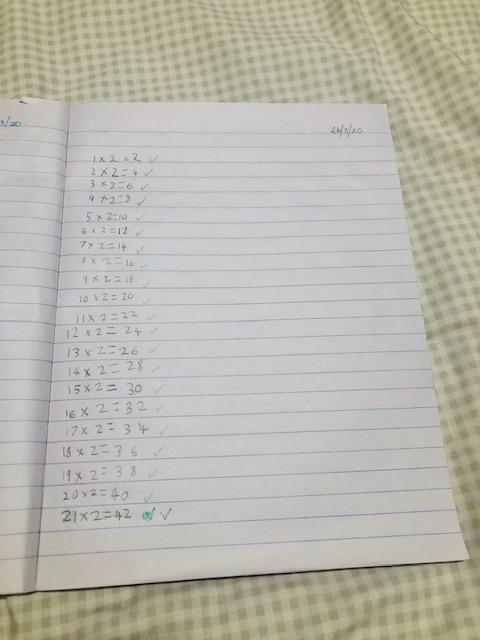 3/20
26/3/20
1 × 2 = 2 ✓
2 × 2 = 4 ✓
3 × 2 = 6 ✓
4 × 2 = 8 ✓
5 × 2 = 10 ✓
6 × 2 = 12 ✓
7 × 2 = 14 ✓
8 × 2 = 16 ✓
9 × 2 = 18 ✓
10 × 2 = 20 ✓
11 × 2 = 22 ✓
12 × 2 = 24 ✓
13 × 2 = 26 ✓
14 × 2 = 28 ✓
15 × 2 = 30 ✓
16 × 2 = 32 ✓
17 × 2 = 34 ✓
18 × 2 = 36 ✓
19 × 2 = 38 ✓
20 × 2 = 40 ✓
21 × 2 = 42 ✓